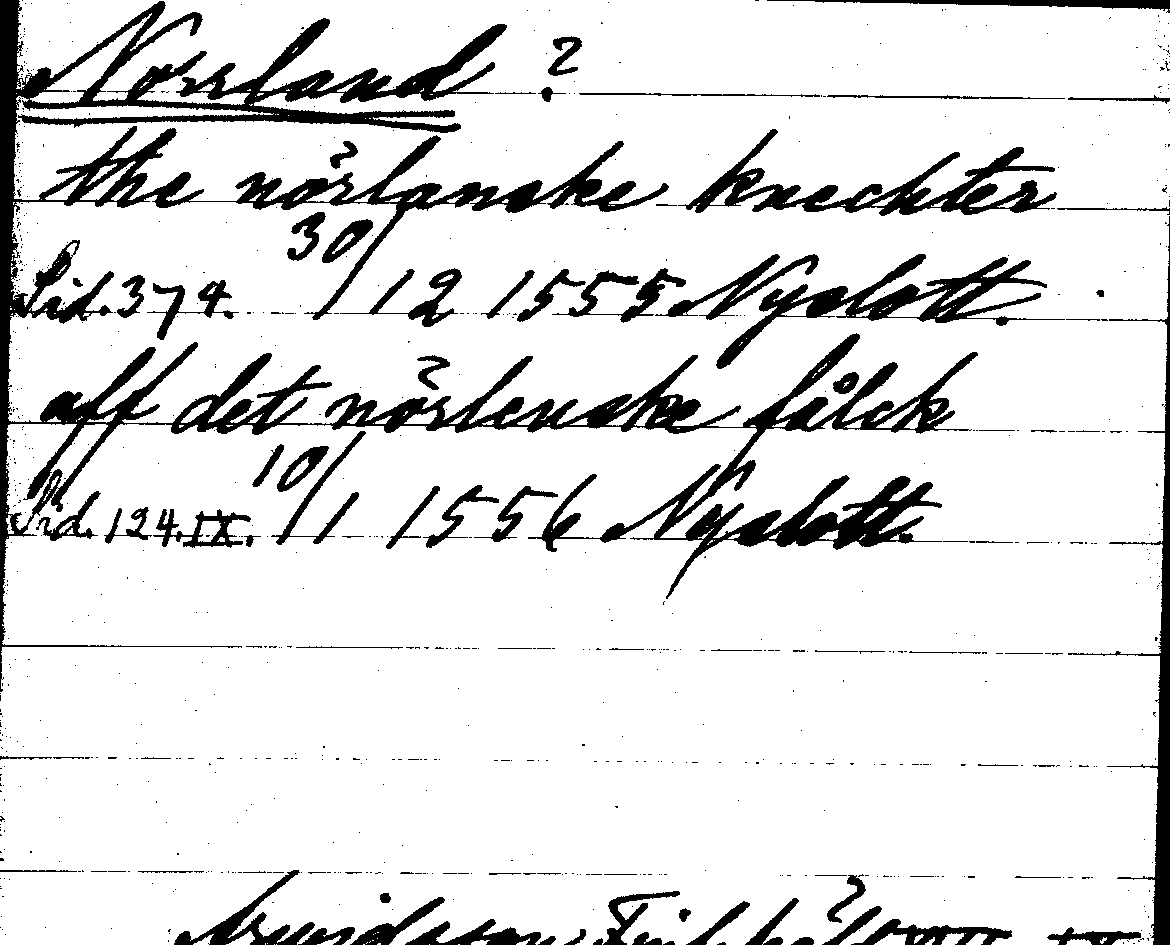 Norrland ?
the nörlanske knechter
Sid. 374. 30/12 1555 Nyslott.
aff det nörlenske fålck
Sid. 124. IX. 10/1 1556 Nyslott.
Arvidsson,